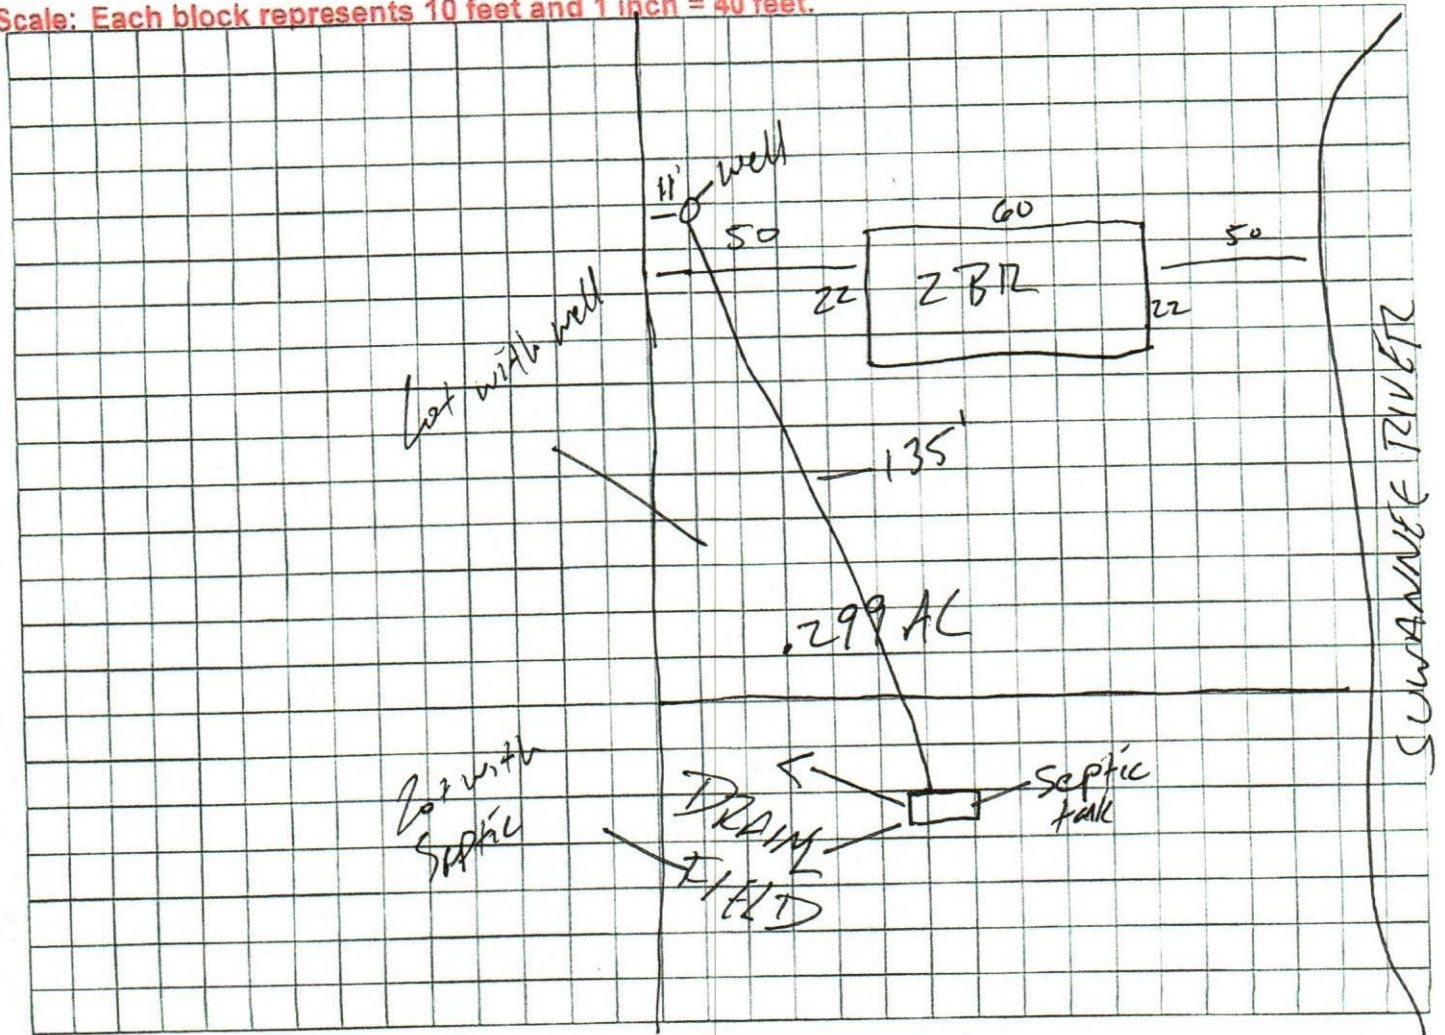 Scale: Each block represents 10 feet and 1 inch = 40 feet.
11'
well
50
60
50
22
2 BR
22
Lot with well
135'
.299 AC
SUWANNEE RIVER
Lot with
Septic
DRAIN
FIELD
Septic
tank